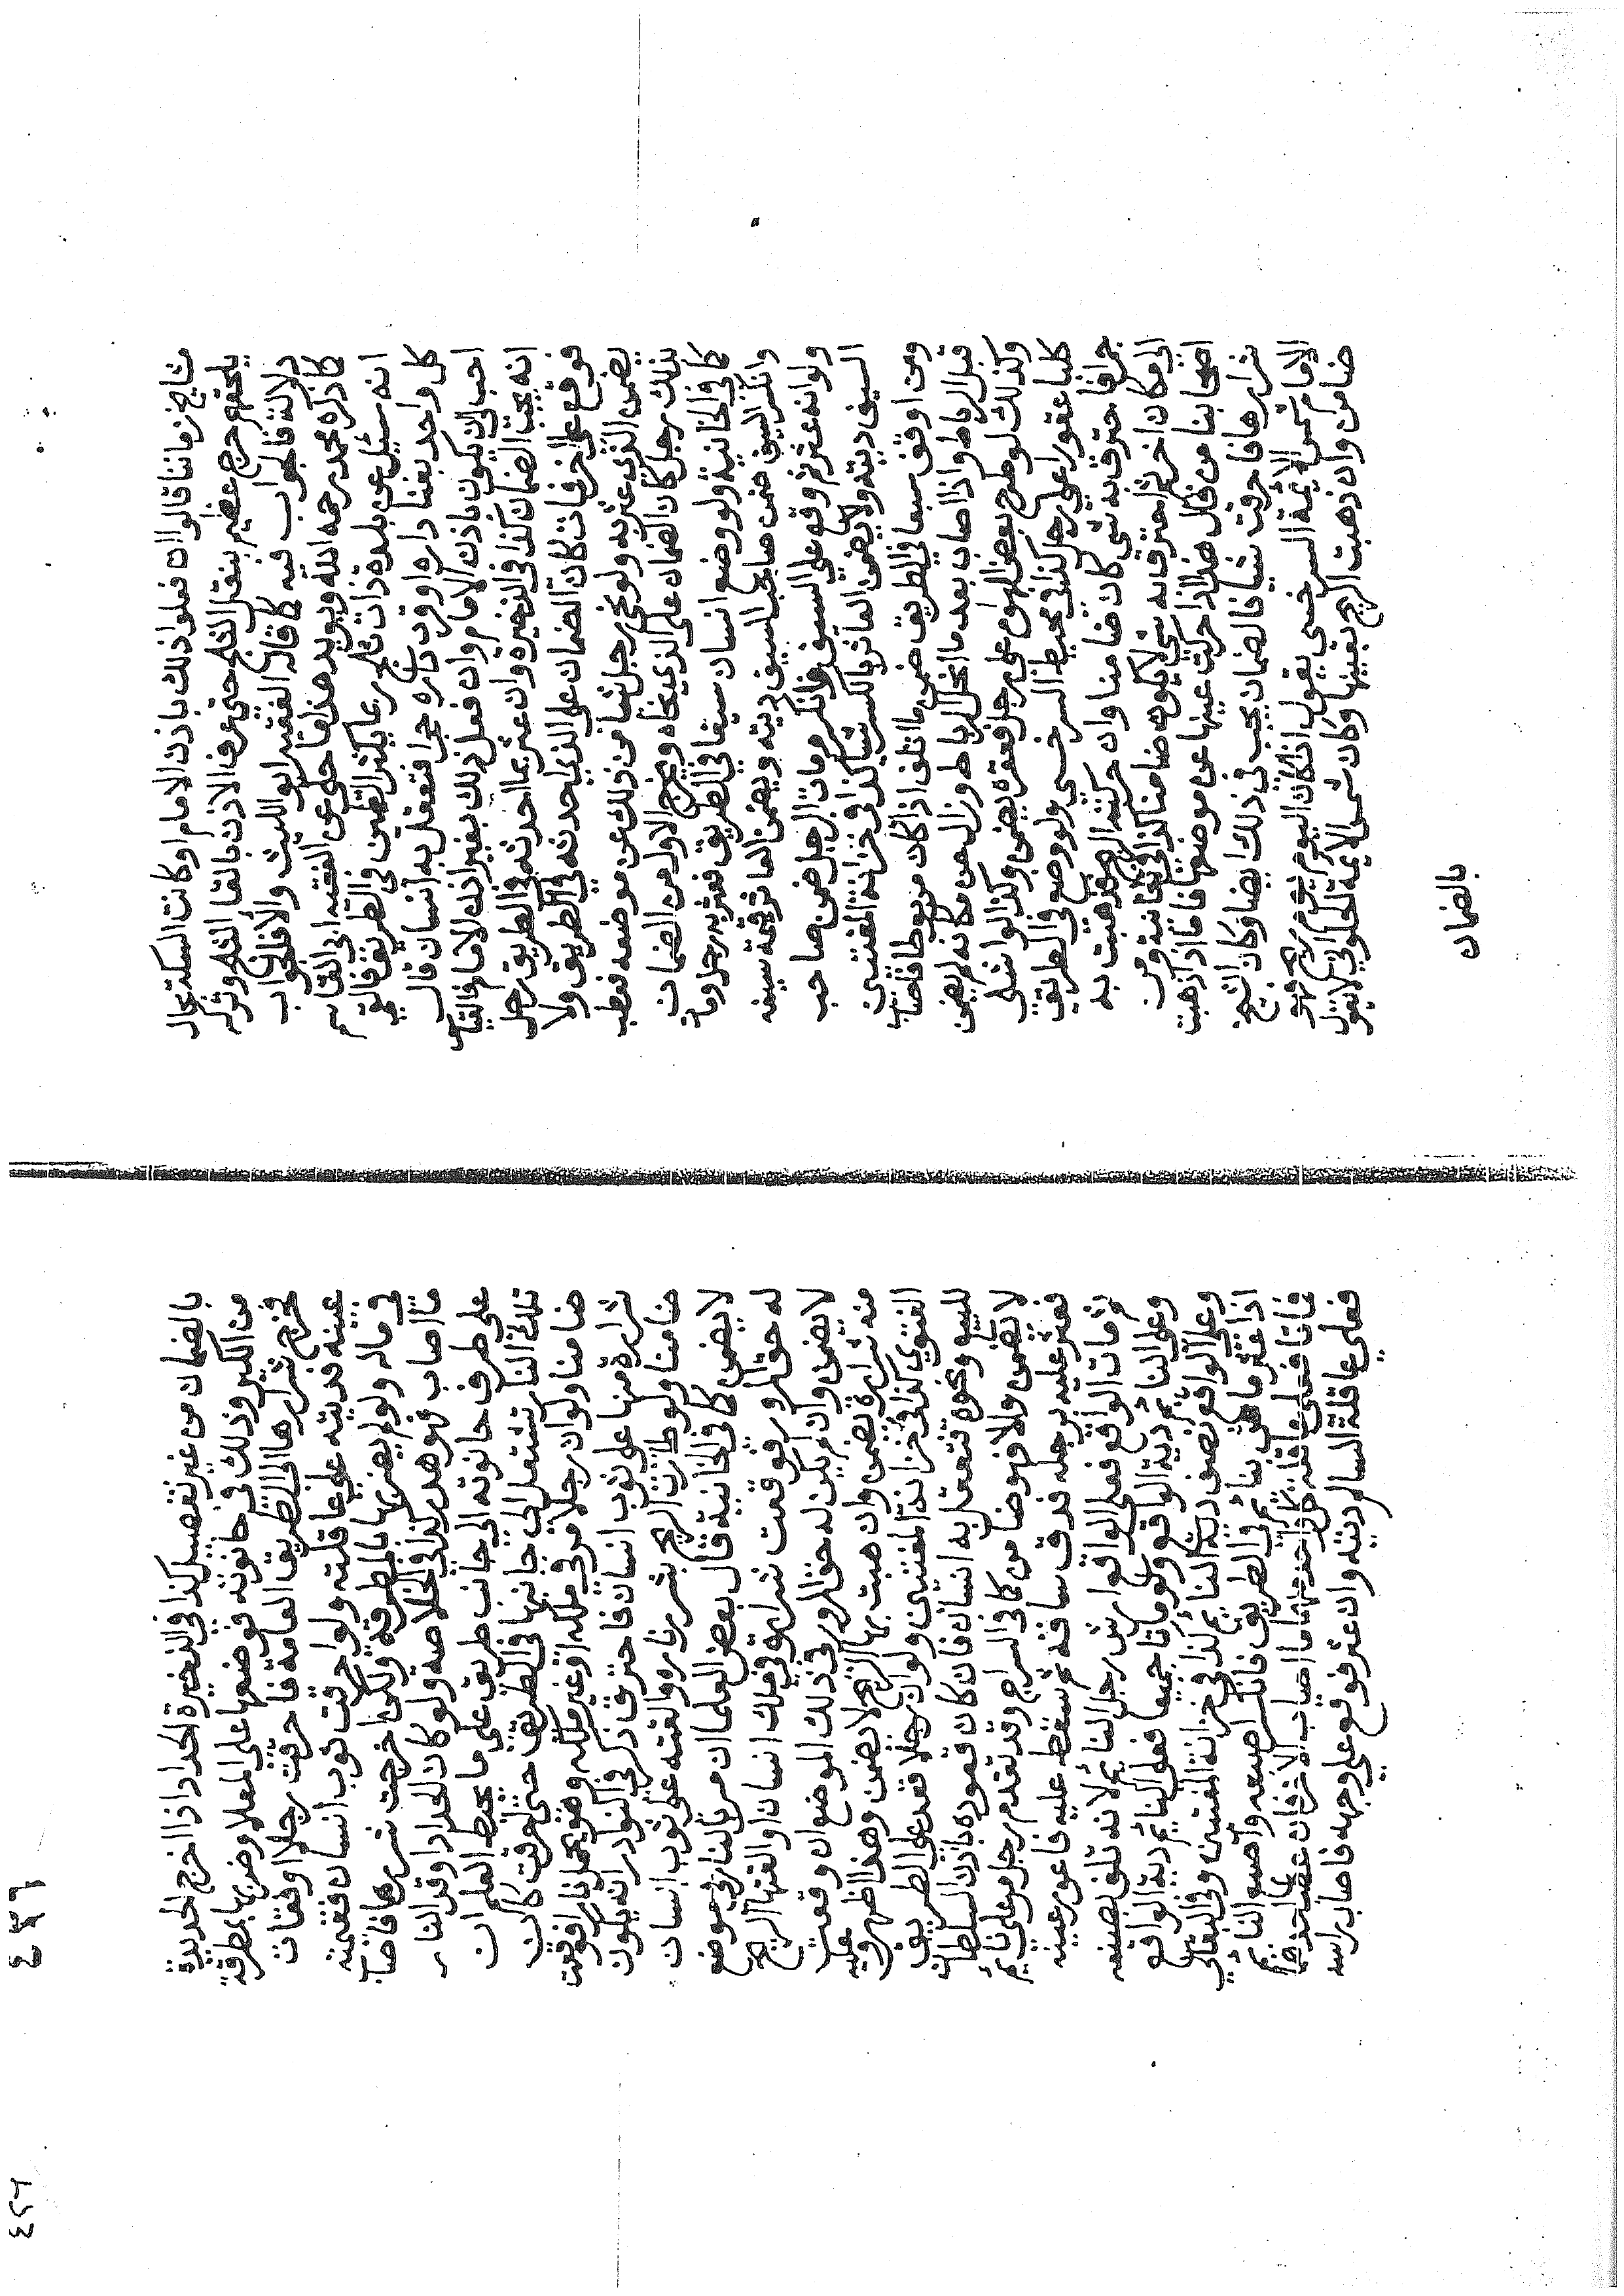 مشايخ زماننا قالوا ان فعلوا ذلك باذن الامام او كانت السكة بحال
يلحقهم حرج عظيم بنقل الثلج حتى عرف الاذن بالقا الثلج وتركه
دلالة فالجواب فيه كما قاله الفقيه ابو الليث والا فالجواب
كما ذكره محمد رحمه الله ويؤيد هذا ما حكي عن الفقيه ابي القاسم
انه سئل عن بلدة ذات ثلج ربما يكثر الطين في الطريق فالقى
كل واحد بفنا داره او قرب داره حجرا فتعقل به انسان قال
احب الي ان يكون باذن الامام وان فعل ذلك بغير اذن الامام فالقياس
انه يجب الضمان كذا في الذخيره وان عثر بما احدثه في الطريق رجل
فوقع على اخر فمات كان الضمان على الذي احدثه في الطريق ولا
يضمن الذي عثر به ولو نحى رجل شيا من ذلك عن موضعه فعطب
بذلك رجل كان الضمان على الذي نحاه ويخرج الاول من الضمان
كما في الخانية ولو وضع انسان سيفا في الطريق فعثر به رجل ومات
وانكسر السيف ضمن صاحب السيف ديته ويضمن العاثر قيمة سيفه
ولو انه عثر ثم وقع على السيف وانكسر ومات الرجل ضمن صاحب
السيف ديته ولا يضمن العاثر بالكسر شيا كذا في خزانة المفتيين
ومن اوقف سبعا في الطريق ضمن ما اتلف اذا كان مربوطا فاصاب
قبل الرباط واذا اصاب بعد ما انحل الرباط وزال من مكانه لم يضمن
وكذلك لو طرح بعض الهوام على رجل فعقره يضمن وكذا لو اشلى
كلبا عقورا على رجل كذا في محيط السرخسي ولو وضع في الطريق
جمرا فاحترق به شي كان ضامنا وان حركته الريح فذهبت به
الى مكان اخر ثم احترق به شي لا يكون ضامنا كذا في الخانية ومن
اصحابنا من قال هذا اذا حركت عينها عن موضعها فاما اذا ذهبت
شرارها فاحرقت شيا فالضمان يجب في ذلك ايضا وكان الشيخ
الامام شمس الائمة السرخسي يقول اذا كان اليوم يوم ريح فهو
ضامن وان ذهبت الريح بعينها وكان شمس الائمة الحلواني لا يقول
بالضمان
بالضمان من غير تفصيل كذا في الذخيرة الحداد اذا اخرج الحديدة
من الكير وذلك في حانوته فوضعها على العلا وضربها بمطرقة
فخرج شرارها الى الطريق العامة فاحرقت رجلا او فقات
عينه فديته على عاقلته ولو احرقت ثوب انسان فقيمته
في ماله ولو لم يضربها بالمطرقة ولكن اخرجت شررها فاصاب
ما اصاب فهو هدر كذا في الخلاصه ولو كان الحداد اوقد النار
على طرف حانوته الى جانب طريق على ما يحيط العلم ان
تلك النار تشتعل الى جانبها في الطريق حتى احرقت كان
ضامنا ولو ان رجلا مر في ملكه او غير ملكه وهو يحمل نارا فوقعت
شرارة منها على ثوب انسان فاحترق ذكر في النوادر انه يكون
ضامنا ولو طارت الريح بشرر ناره والقته على ثوب انسان
لا يضمن كما في الخانية قال بعض العلما ان مر بالنار في موضع
له حق المرور فوقعت شرارة في ملك انسان او القتها الريح
لا يضمن وان لم يكن له حق المرور في ذلك الموضع ان وقعت
منه شرارة يضمن وان هبت بها الريح لا يضمن وهذا اظهر وعليه
الفتوى كذا في خزانة المفتيين ولو ان رجلا قعد على الطريق
للبيع ونحوه فتعقل به انسان فان كان قعوده باذن السلطان
لا يضمن والا فهو ضامن كما في السراج وقد تقدم رجل مر على نائم
فعثر عليه برجله فدق ساقه ثم سقط عليه فاعور عينه
ثم مات الواقع فعلى الواقع ارش رجل النائم لانه تلف بصنعه
وعلى النائم دية الواقع ولو ماتا جميعا فعلى النائم دية الواقع
وعلى الواقع نصف دية النائم كذا في خزانة المفتيين وفي البقالي
اذا عثر ماش بنائم في الطريق فانكسر اصبعه واصبع النائم
فماتا فعلى عاقلة كل واحد منهما ما اصاب الاخر
فعلى عاقلة السالم ديته وان عثر فوقع على وجهه فاصاب راسه
٤٣٦
٤٣٦